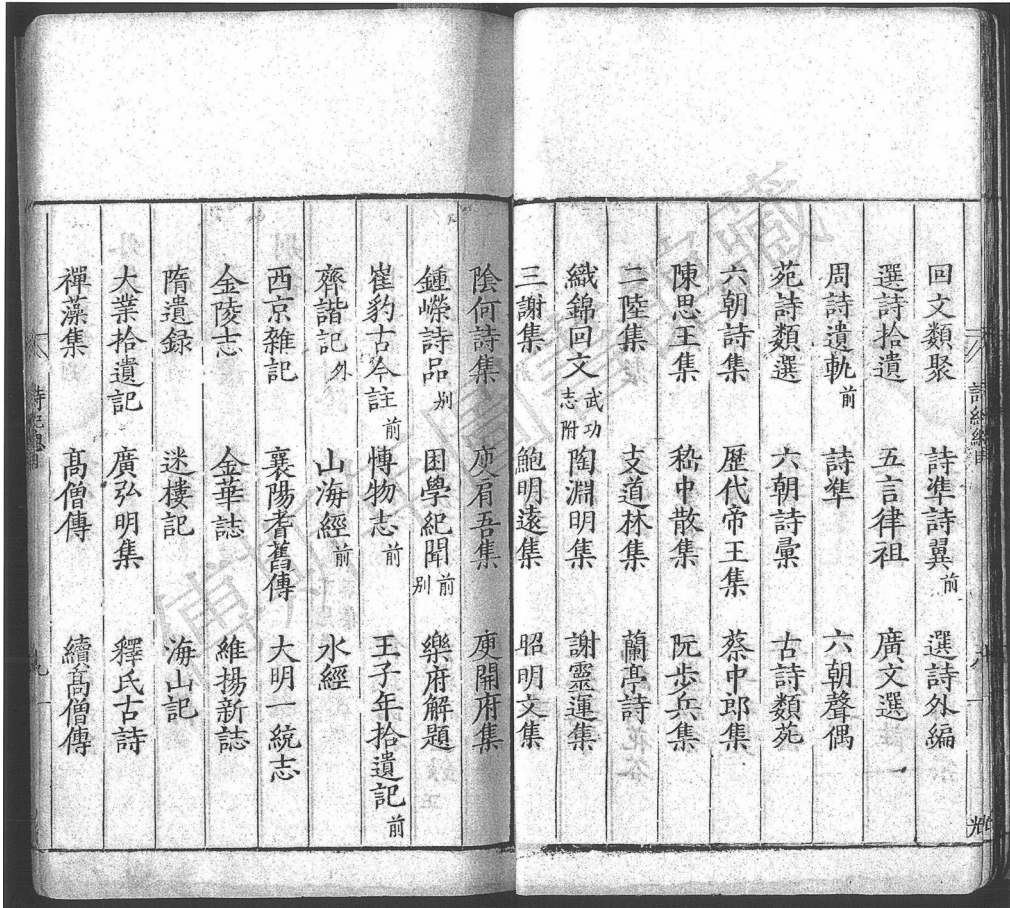 回文類聚 詩準詩翼前 選詩外編
選詩拾遺 五言律祖 廣文選一
周詩遺軌前 詩準 六朝聲偶
苑詩類選 六朝詩彙 古詩類苑
六朝詩集 歷代帝王集 蔡中郎集
陳思王集 嵇中散集 阮步兵集
二陸集 支道林集 蘭亭詩
織錦回文武功志附 陶淵明集 謝靈運集
三謝集 鮑明遠集 昭明文集
陰何詩集 庾肩吾集 庾開府集
鍾嶸詩品別 困學紀聞前別 樂府解題
崔豹古今註前 博物志前 王子年拾遺記前
齊諧記外 山海經前 水經
西京雜記 襄陽耆舊傳 大明一統志
金陵志 金華誌 維揚新誌
隋遺録 迷樓記 海山記
大業拾遺記 廣弘明集 釋氏古詩
禪藻集 髙僧傳 續髙僧傳